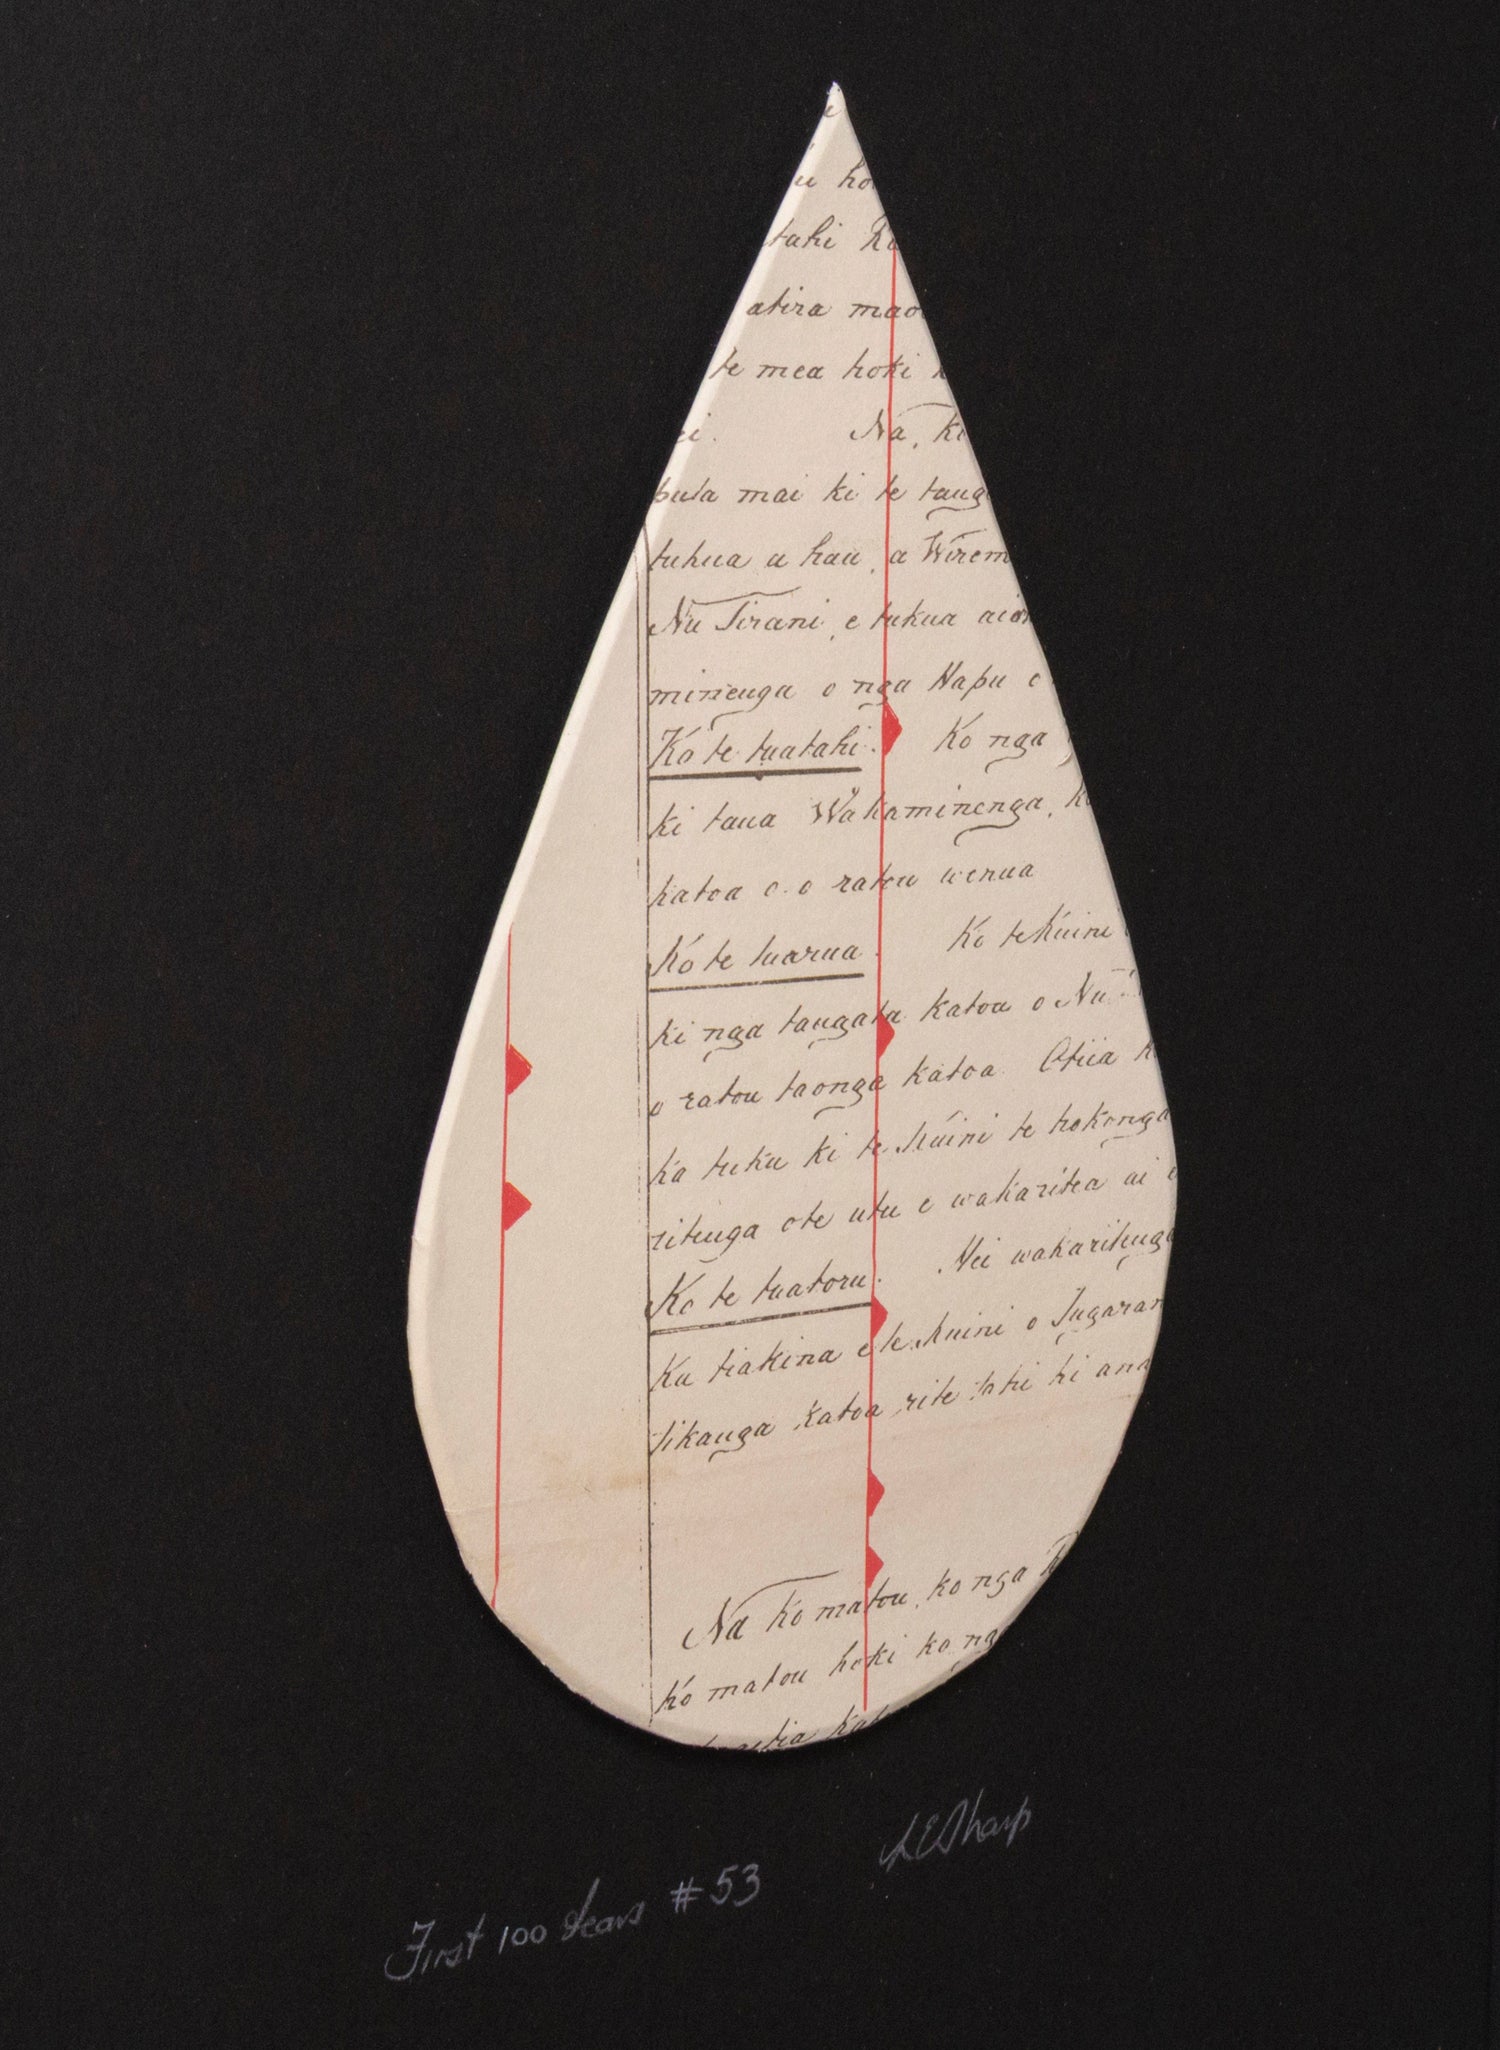 e
u ho
tahi Ra
atira mao
te mea hoki k
ei. Na, ki
puta mai ki te tanga
tukua a hau, a Wirem
Nu Tirani e tukua aia
minenga o nga Hapu o
Ko te tuatahi. Ko nga
ki taua Wakaminenga, k
katoa o o ratou wenua
Ko te tuarua. Ko te Kuini
ki nga tangata katoa o Nu
o ratou taonga katoa. Otiia k
ka tuku ki te Kuini te hokonga
ritenga o te utu e wakaritea ai e
Ko te tuatoru. Hei wakaritenga
Ka tiakina e te Kuini o Ingaran
tikanga katoa rite tahi ki ana
Na ko matou, ko nga R
ko matou hoki ko nga
tia kat
First 100 tears #53 LESharp